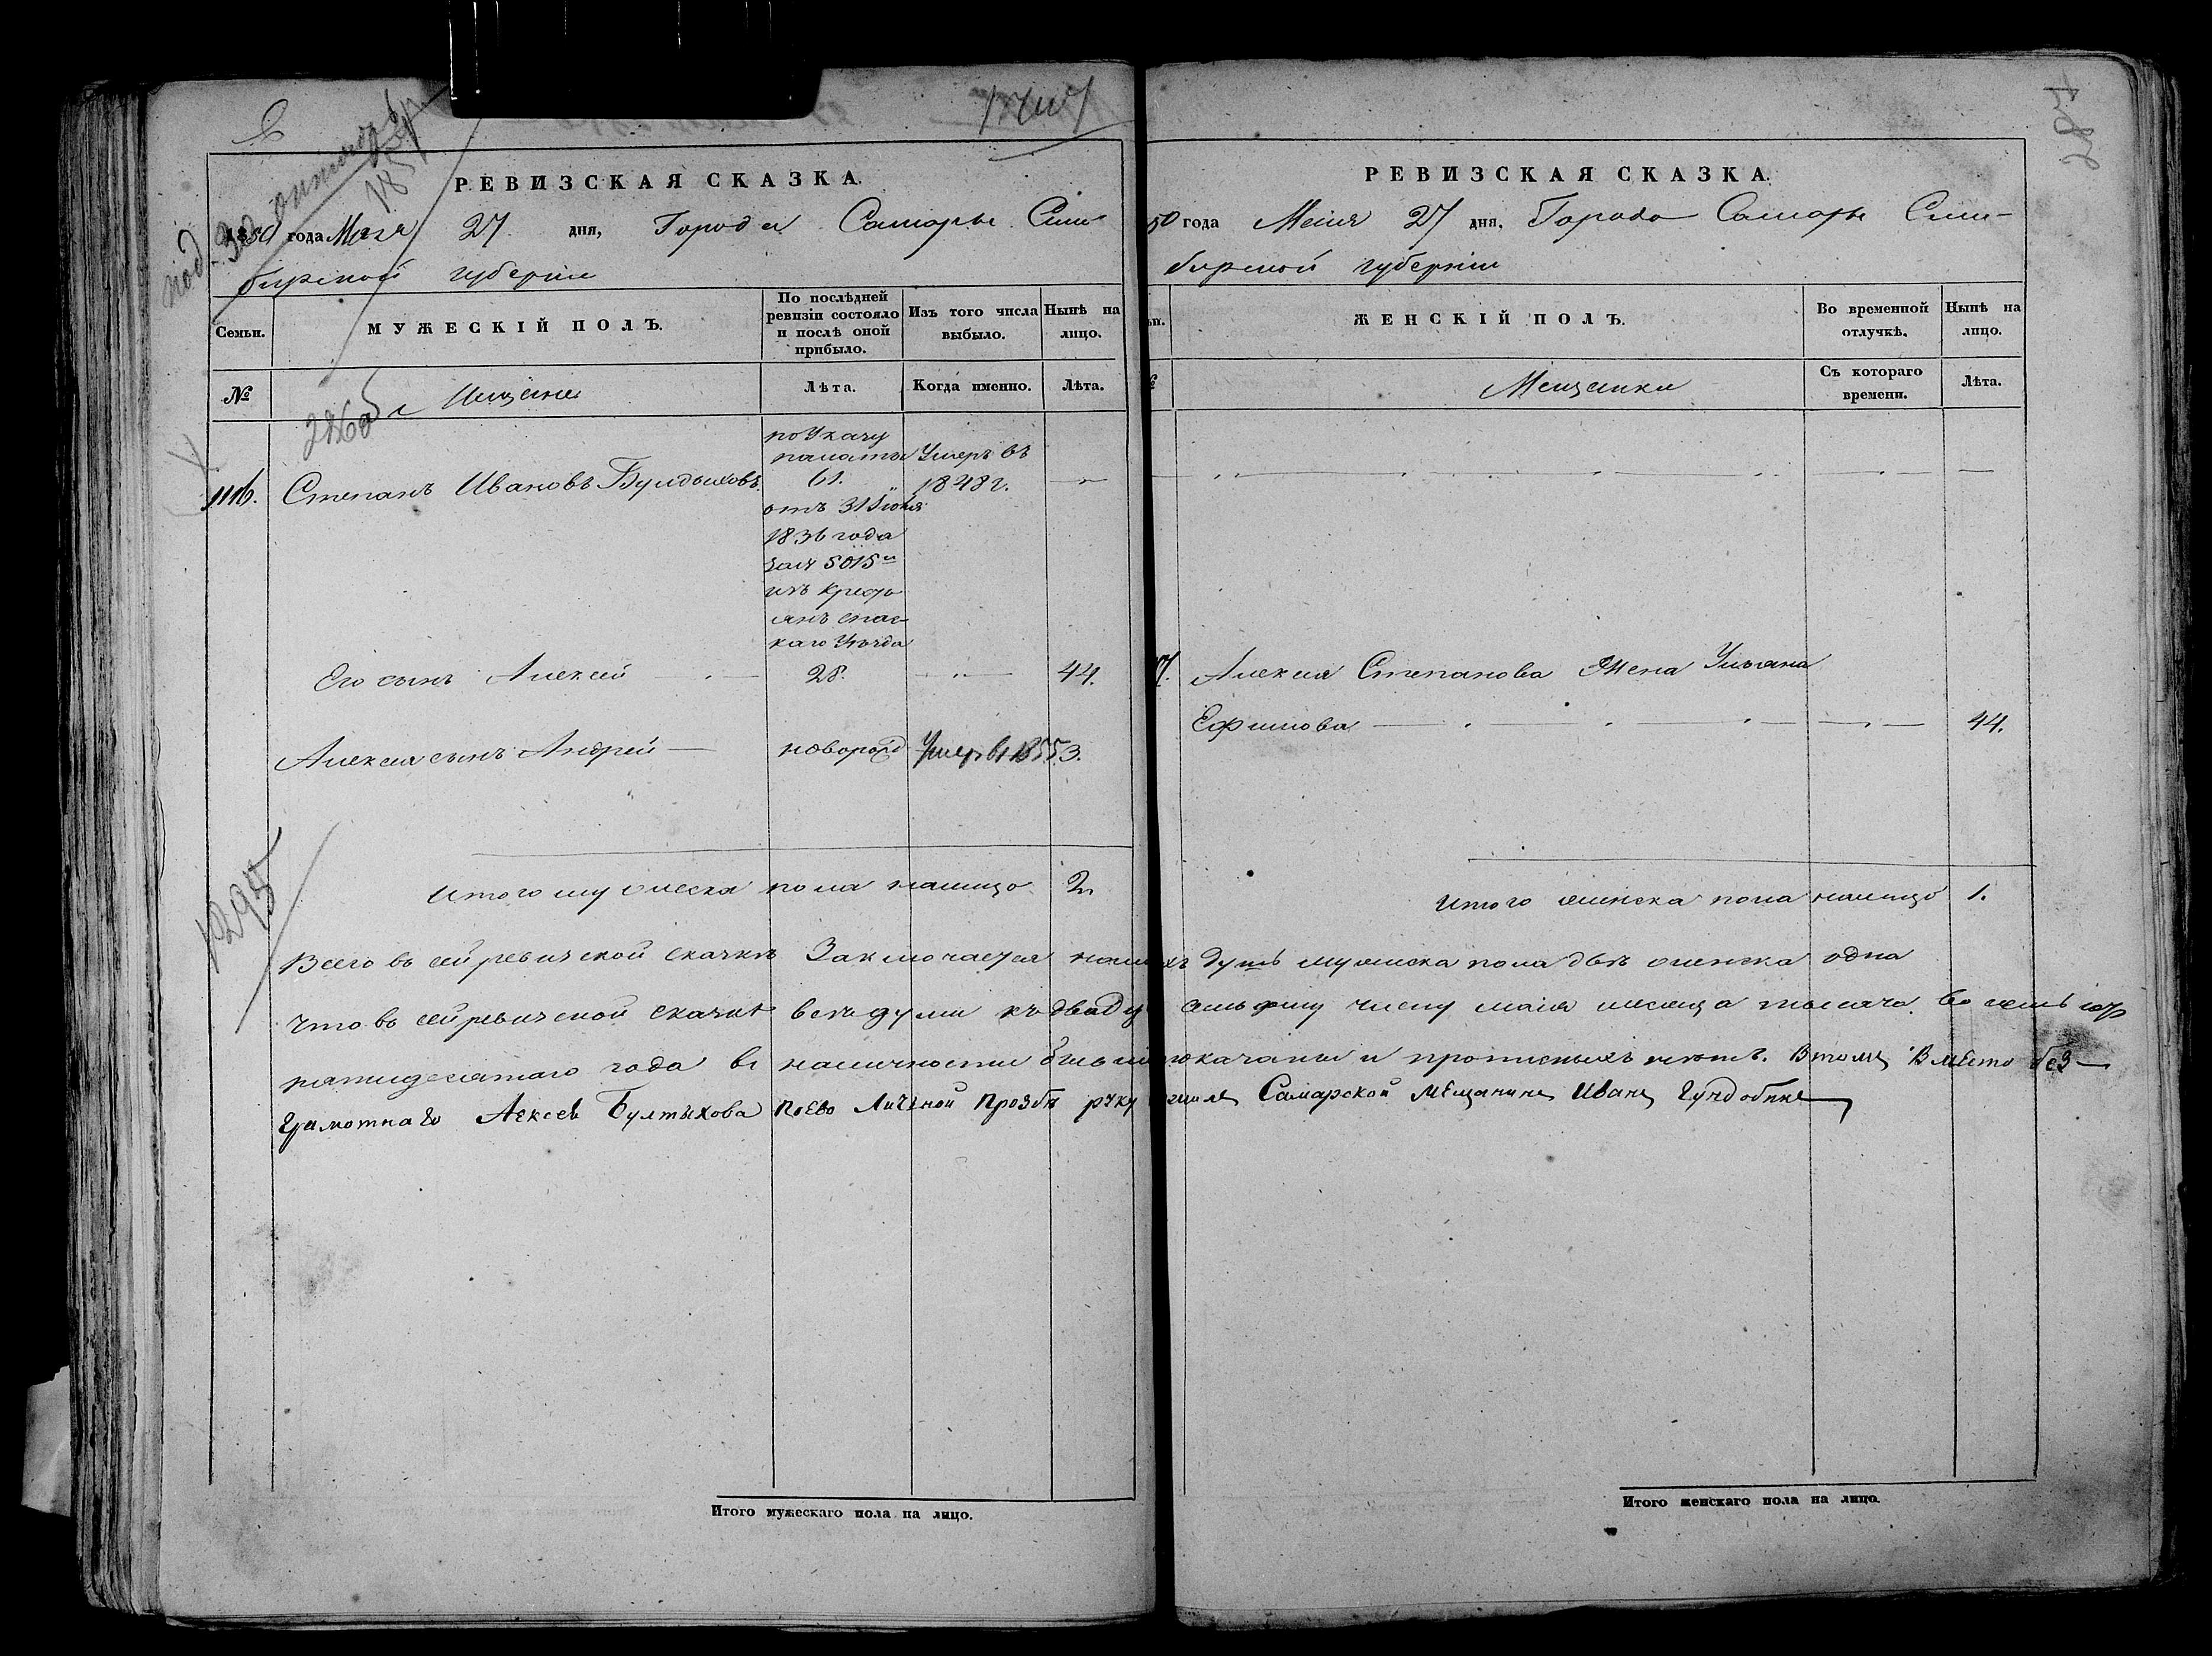 РЕВИЗСКАЯ СКАЗКА.
1850 года Мая 27 дня, Города Самары Сим-
бирской губернии
Семьи.
МУЖЕСКІЙ ПОЛЪ.
По послѣдней
ревизіи состояло
и послѣ оной
прибыло.
Изъ того числа
выбыло.
Нынѣ на
лицо.
№
Мещане
Лѣта.
Когда именно.
Лѣта.
116.
Степанъ Ивановъ
по Указу
палаты
61.
отъ 31 Іюля
1836 года
за № 5015
изъ кресть
янъ спас-
каго Уѣзда
Умеръ въ
1848 г.
Его сынъ Алексей
28.
44.
Алексея сынъ Андрей
новорожд
Умеръ в 1855
3.
1295
Итого мужеска пола налицо 2.
РЕВИЗСКАЯ СКАЗКА.
50 года Маія 27 дня, Города Самары Сим-
бирской губерніи
ЖЕНСКІЙ ПОЛЪ.
Во временной
отлучкѣ.
Нынѣ на
лицо.
Мещанки
Съ котораго
времени.
Лѣта.
Алексея Степанова Жена Ульяна
Ефимова
44.
Итого женска пола налицо 1.
Всего въ сей ревизской сказкѣ Заключается душъ мужеска пола двѣ женска одна
что въ сей ревизской сказкѣ числу маія месяца тысяча
пятидесятаго года в наличности были показаны и прописныхъ нѣтъ. Втомъ Вместо без-
грамотнаго Алексея Булт​ыхова Поево Личеной Прозбѣ Самарской Мещанинъ Иванъ Гундобинъ
Итого мужескаго пола на лицо.
Итого женскаго пола на лицо.